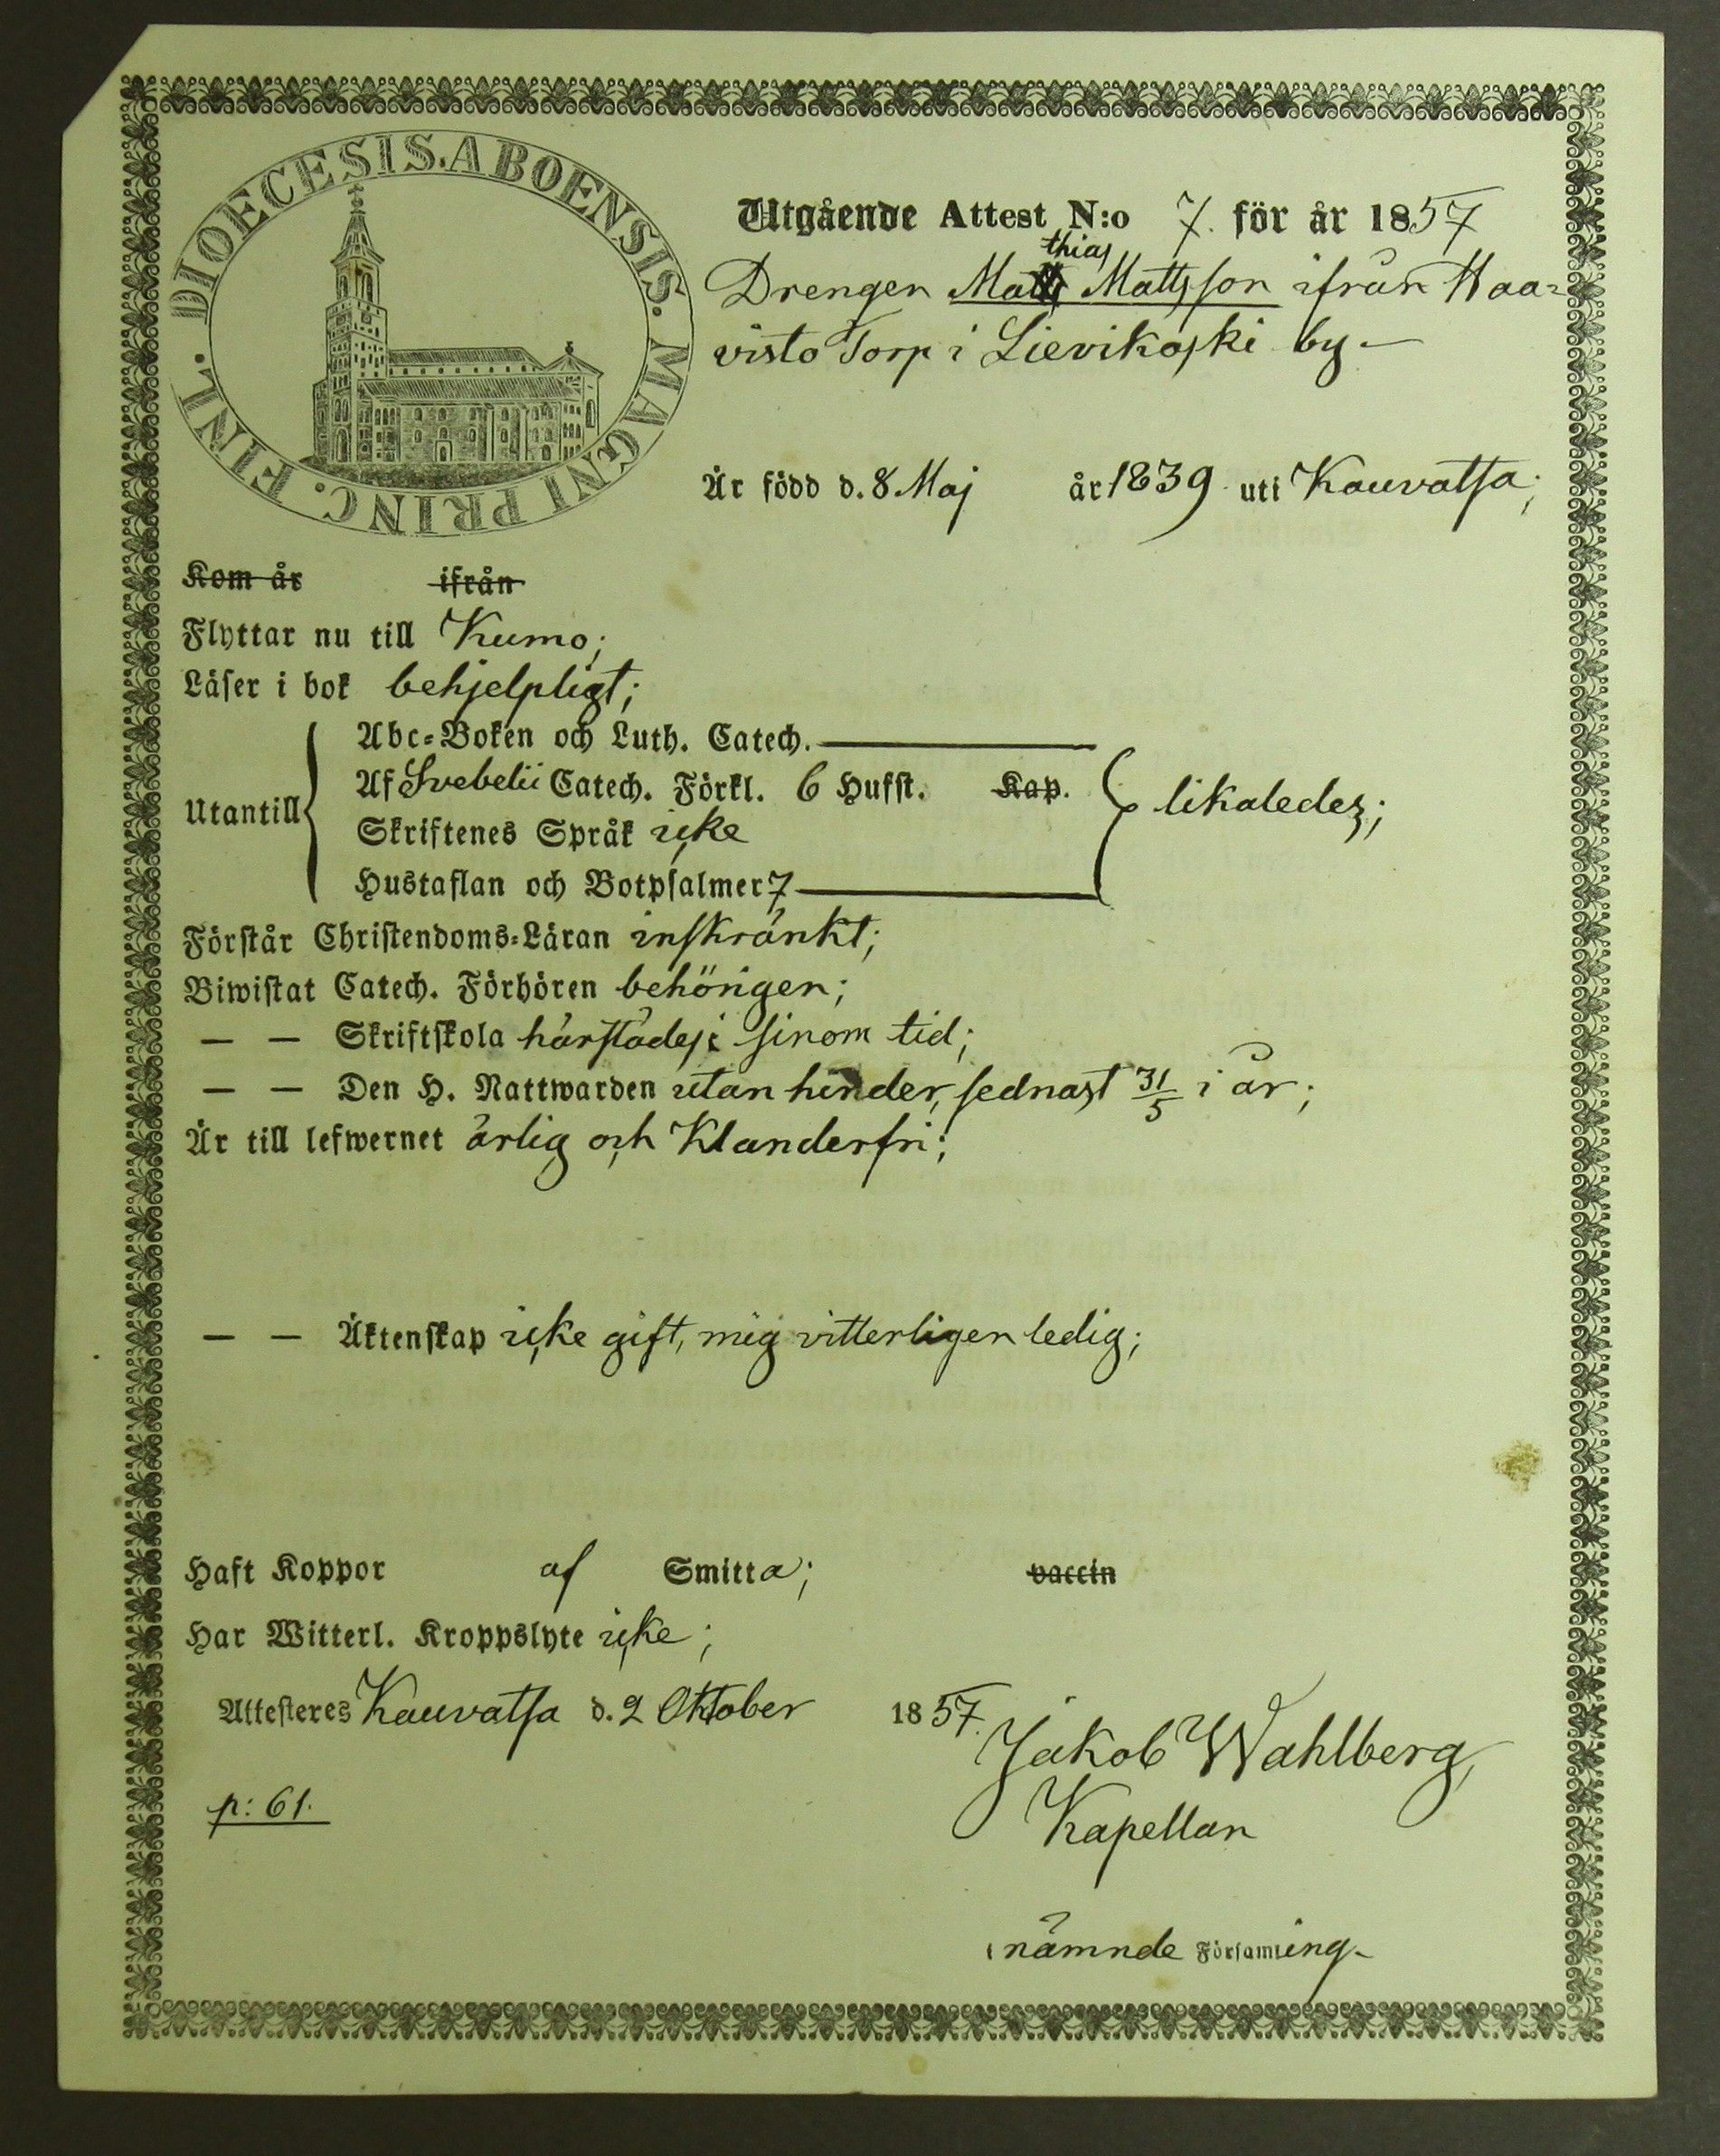 DIOECESIS. ABOENSIS. MAGNI PRINC. FINL.
Utgående Attest N:o 7. för år 1857
thias
Drengen Matts Mattsson ifrån Haa-
visto Torp i Lievikoski by.—
Är född d. 8 Maj år 1839 uti Kauvatsa;
Kom år ifrån
Flyttar nu till Kumo;
Läser i bok behjelpligt;
Utantill
Abc-Boken och Luth. Catech.
Af Svebelii Catech. Förkl. 6 Hufst. Kap.
likaledes;
Skriftenes Språk icke
Hustaflan och Botpsalmer 7
Förstår Christendoms-Läran inskränkt;
Biwistat Catech. Förhören behörigen;
— — Skriftskola härstädes i sinom tid;
— — Den H. Nattwarden utan hinder, sednast 31/5 i år;
Är till lefwernet ärlig och klanderfri;
— — Äktenskap icke gift, mig vitterligen ledig;
Haft Koppor af Smitta; vaccin
Har Witterl. Kroppslyte icke;
Attesteres Kauvatsa d. 2 Oktober 1857.
Jakob Wahlberg,
p: 61.
Kapellan
i nämnde Församling.